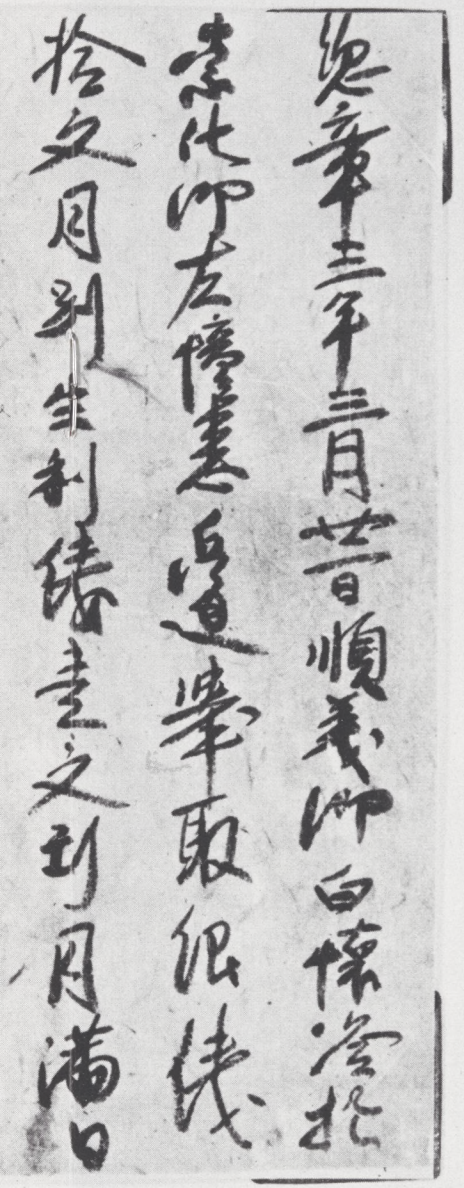 惣章三年三月廿一日順義鄉白懷洛於
崇化鄉左憧憙邊舉取銀錢
拾文月別生利錢壹文到月滿日